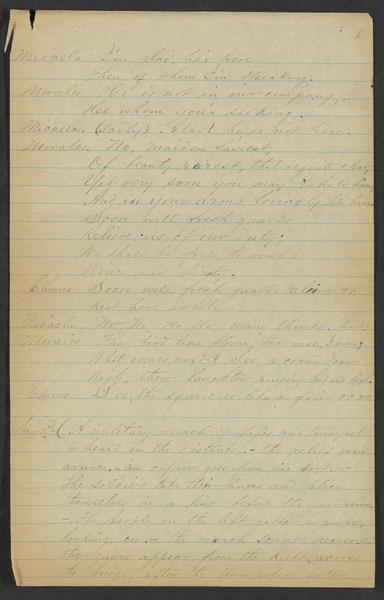 6
Micaela I'm glad, he's here
Then of whom I'm speaking.
Morales He is not in our company,
He whom you're seeking.
Micaela. (Sadly) Alas! he is not here.
Morales. No, maiden fairest,
Of beauty rarest, that is quite clear,
Yet very soon you may behold him,
And in your arms lovingly fold him.
Soon will fresh guards
Relieve us of our duty;
We shall be free, to worship
Wine and beauty.
Chorus Soon will fresh guards relieve &c
Rest here awhile
Micaela No, No, No, No, many thanks.
Morales The bird has flown,
What comes next? See, a crowd draws
Nigh, their laughter ringing loud and high.
Chorus See, the square is like a fair &c &c
(A military march of fifes and trumpets
is heard in the distance. - the relief guard
arrive. - an officer goes from the fort. -
The soldiers take their lances and place
themselves in a line before the guardhouse
- the people on the left gather in groups,
looking on - the march sounds nearer -
the guard appear from the right, across
the bridge, after the